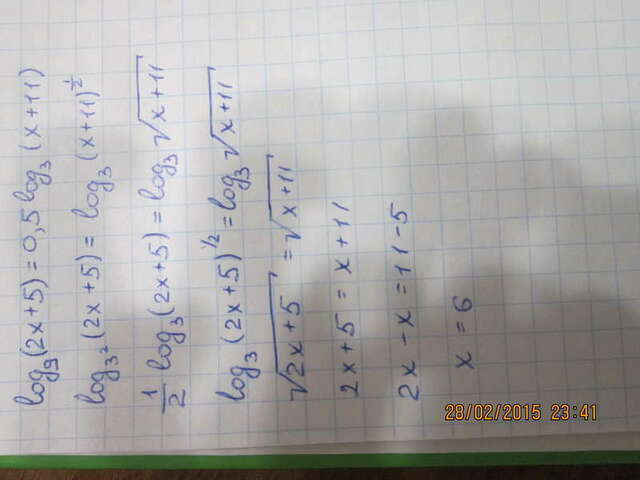 log₉(2x+5)=0,5log₃(x+11)
log₃²(2x+5)=log₃(x+11)^½
½log₃(2x+5)=log₃√(x+11)
log₃(2x+5)^½=log₃√(x+11)
√(2x+5)=√(x+11)
2x+5=x+11
2x-x=11-5
x=6
28/02/2015 23:41